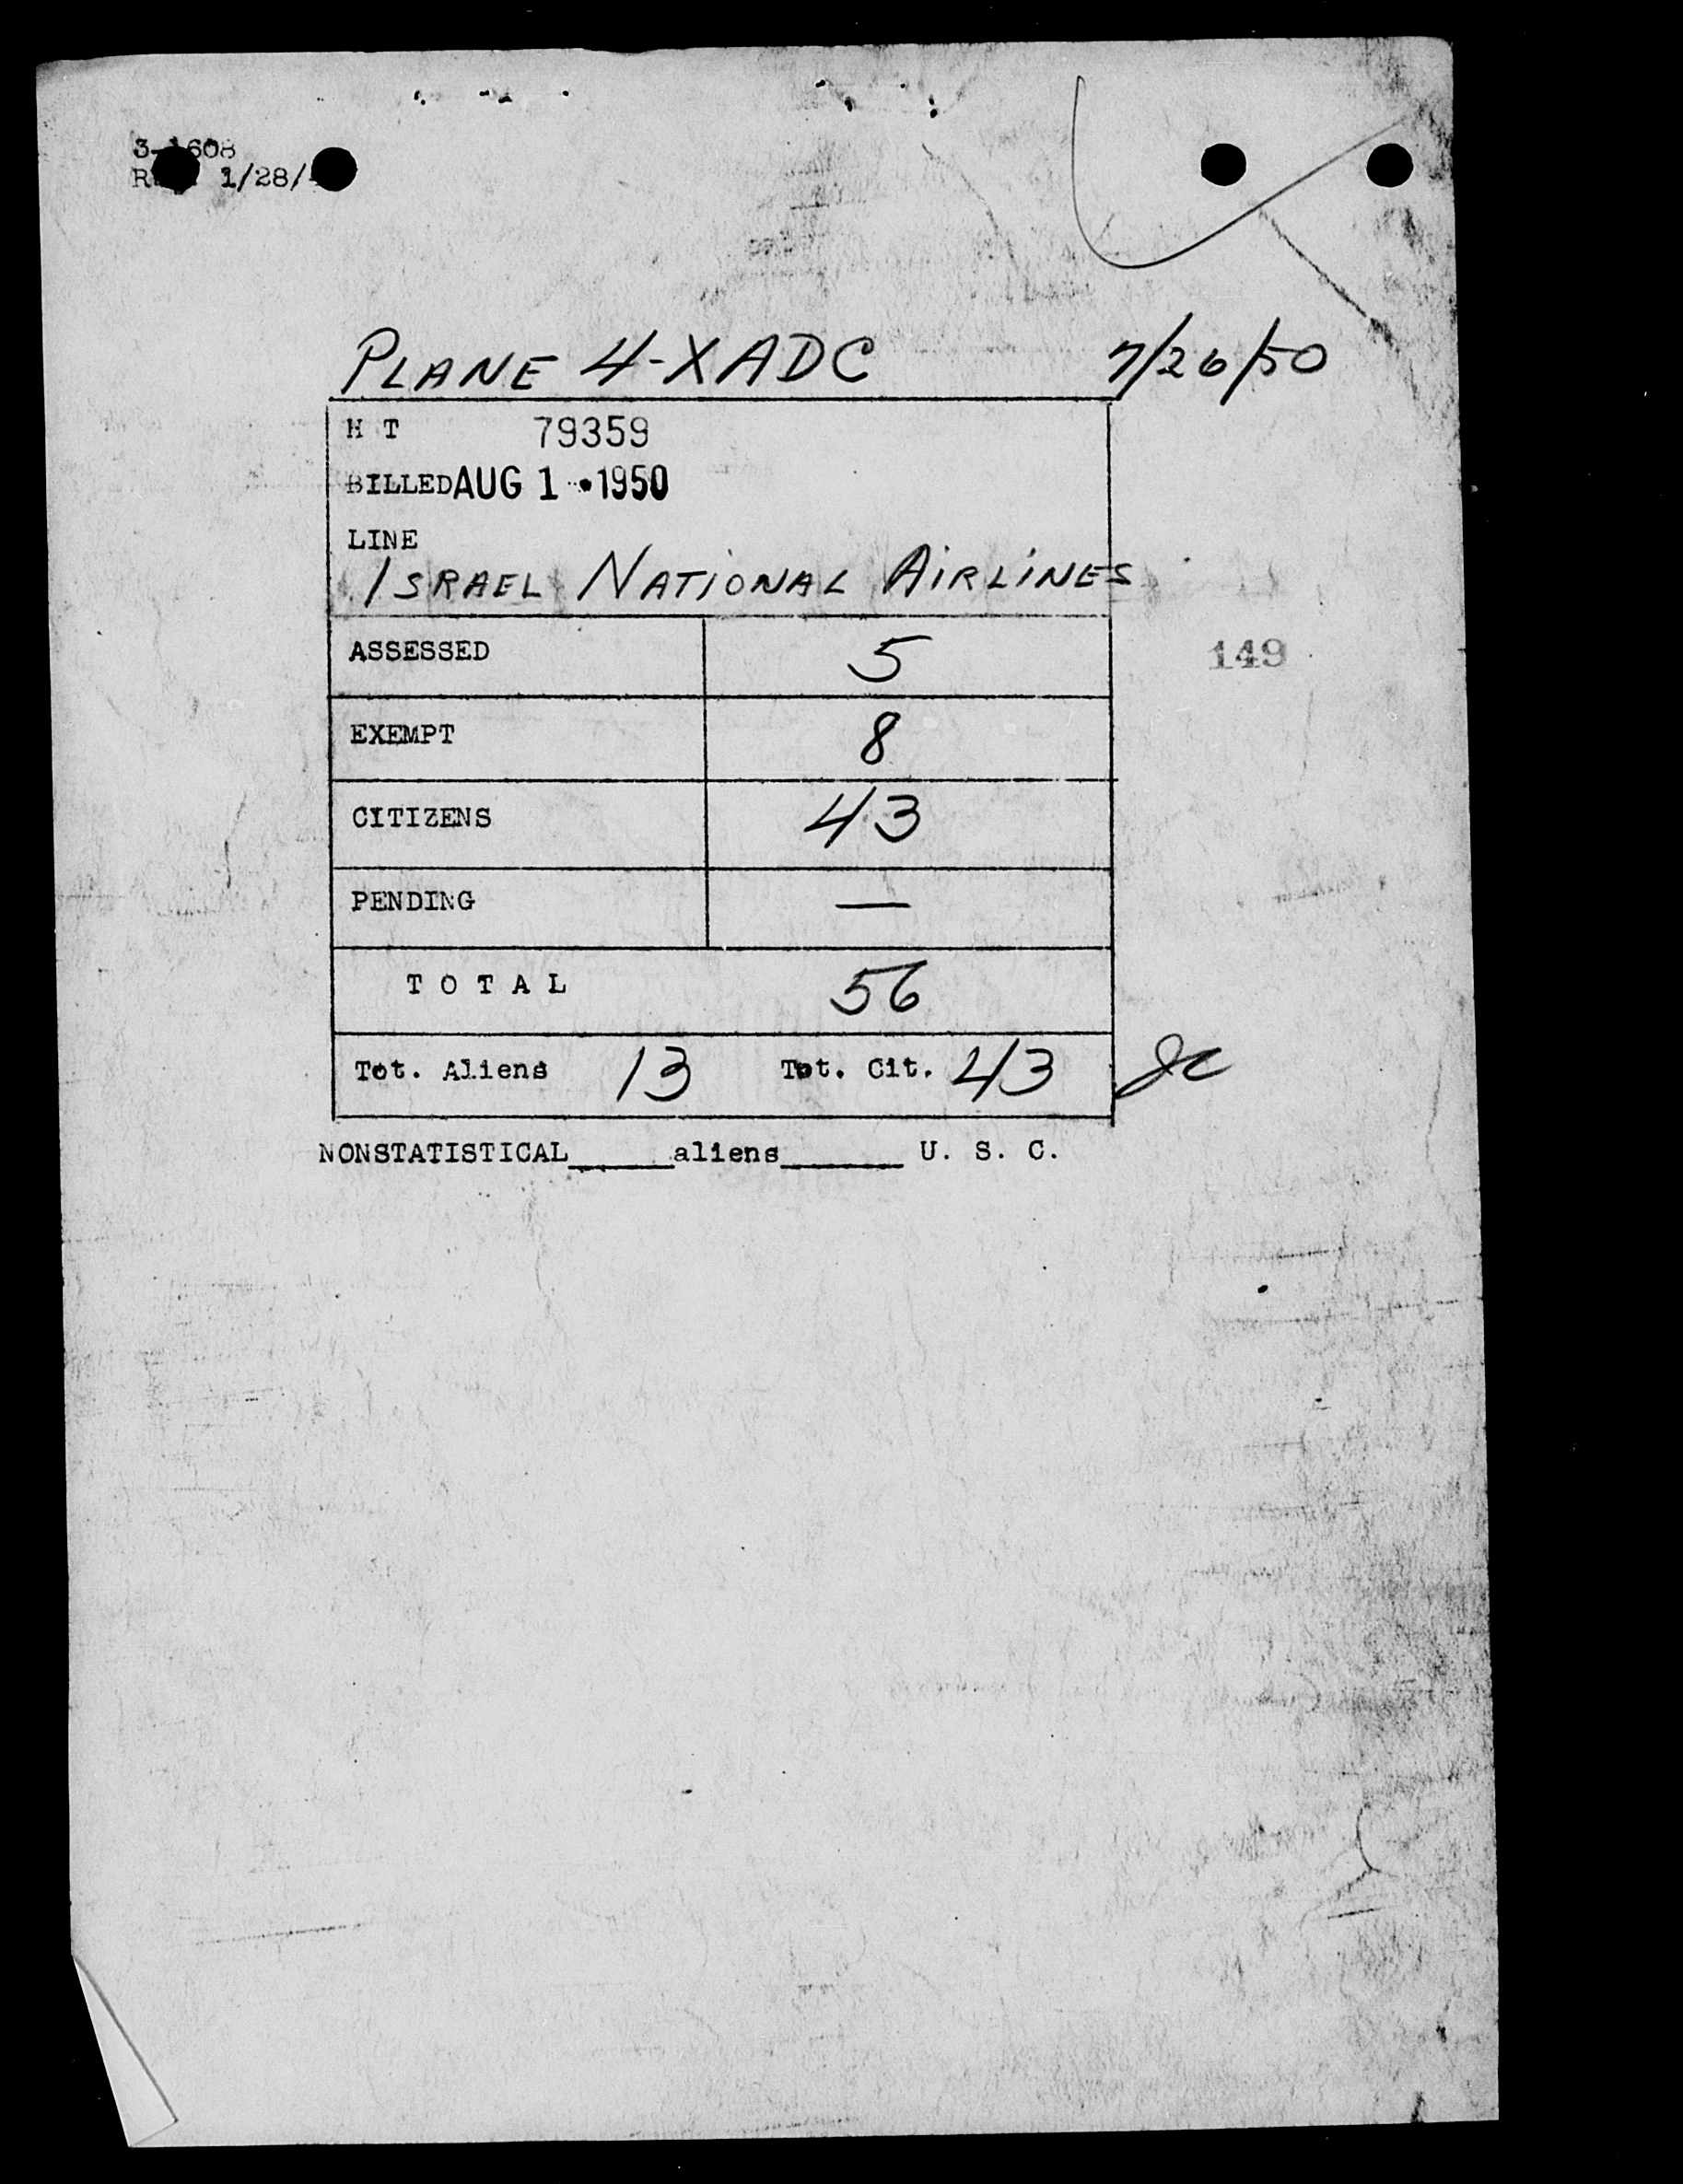 3-1608
1/28/
PLANE 4-XADC 7/26/50
H T 79359
BILLED AUG 1 1950
LINE
ISRAEL NATIONAL AIRLINES
ASSESSED 5
149
EXEMPT 8
CITIZENS 43
PENDING —
TOTAL 56
Tot. Aliens 13 Tot. Cit. 43
NONSTATISTICAL_____aliens______ U. S. C.